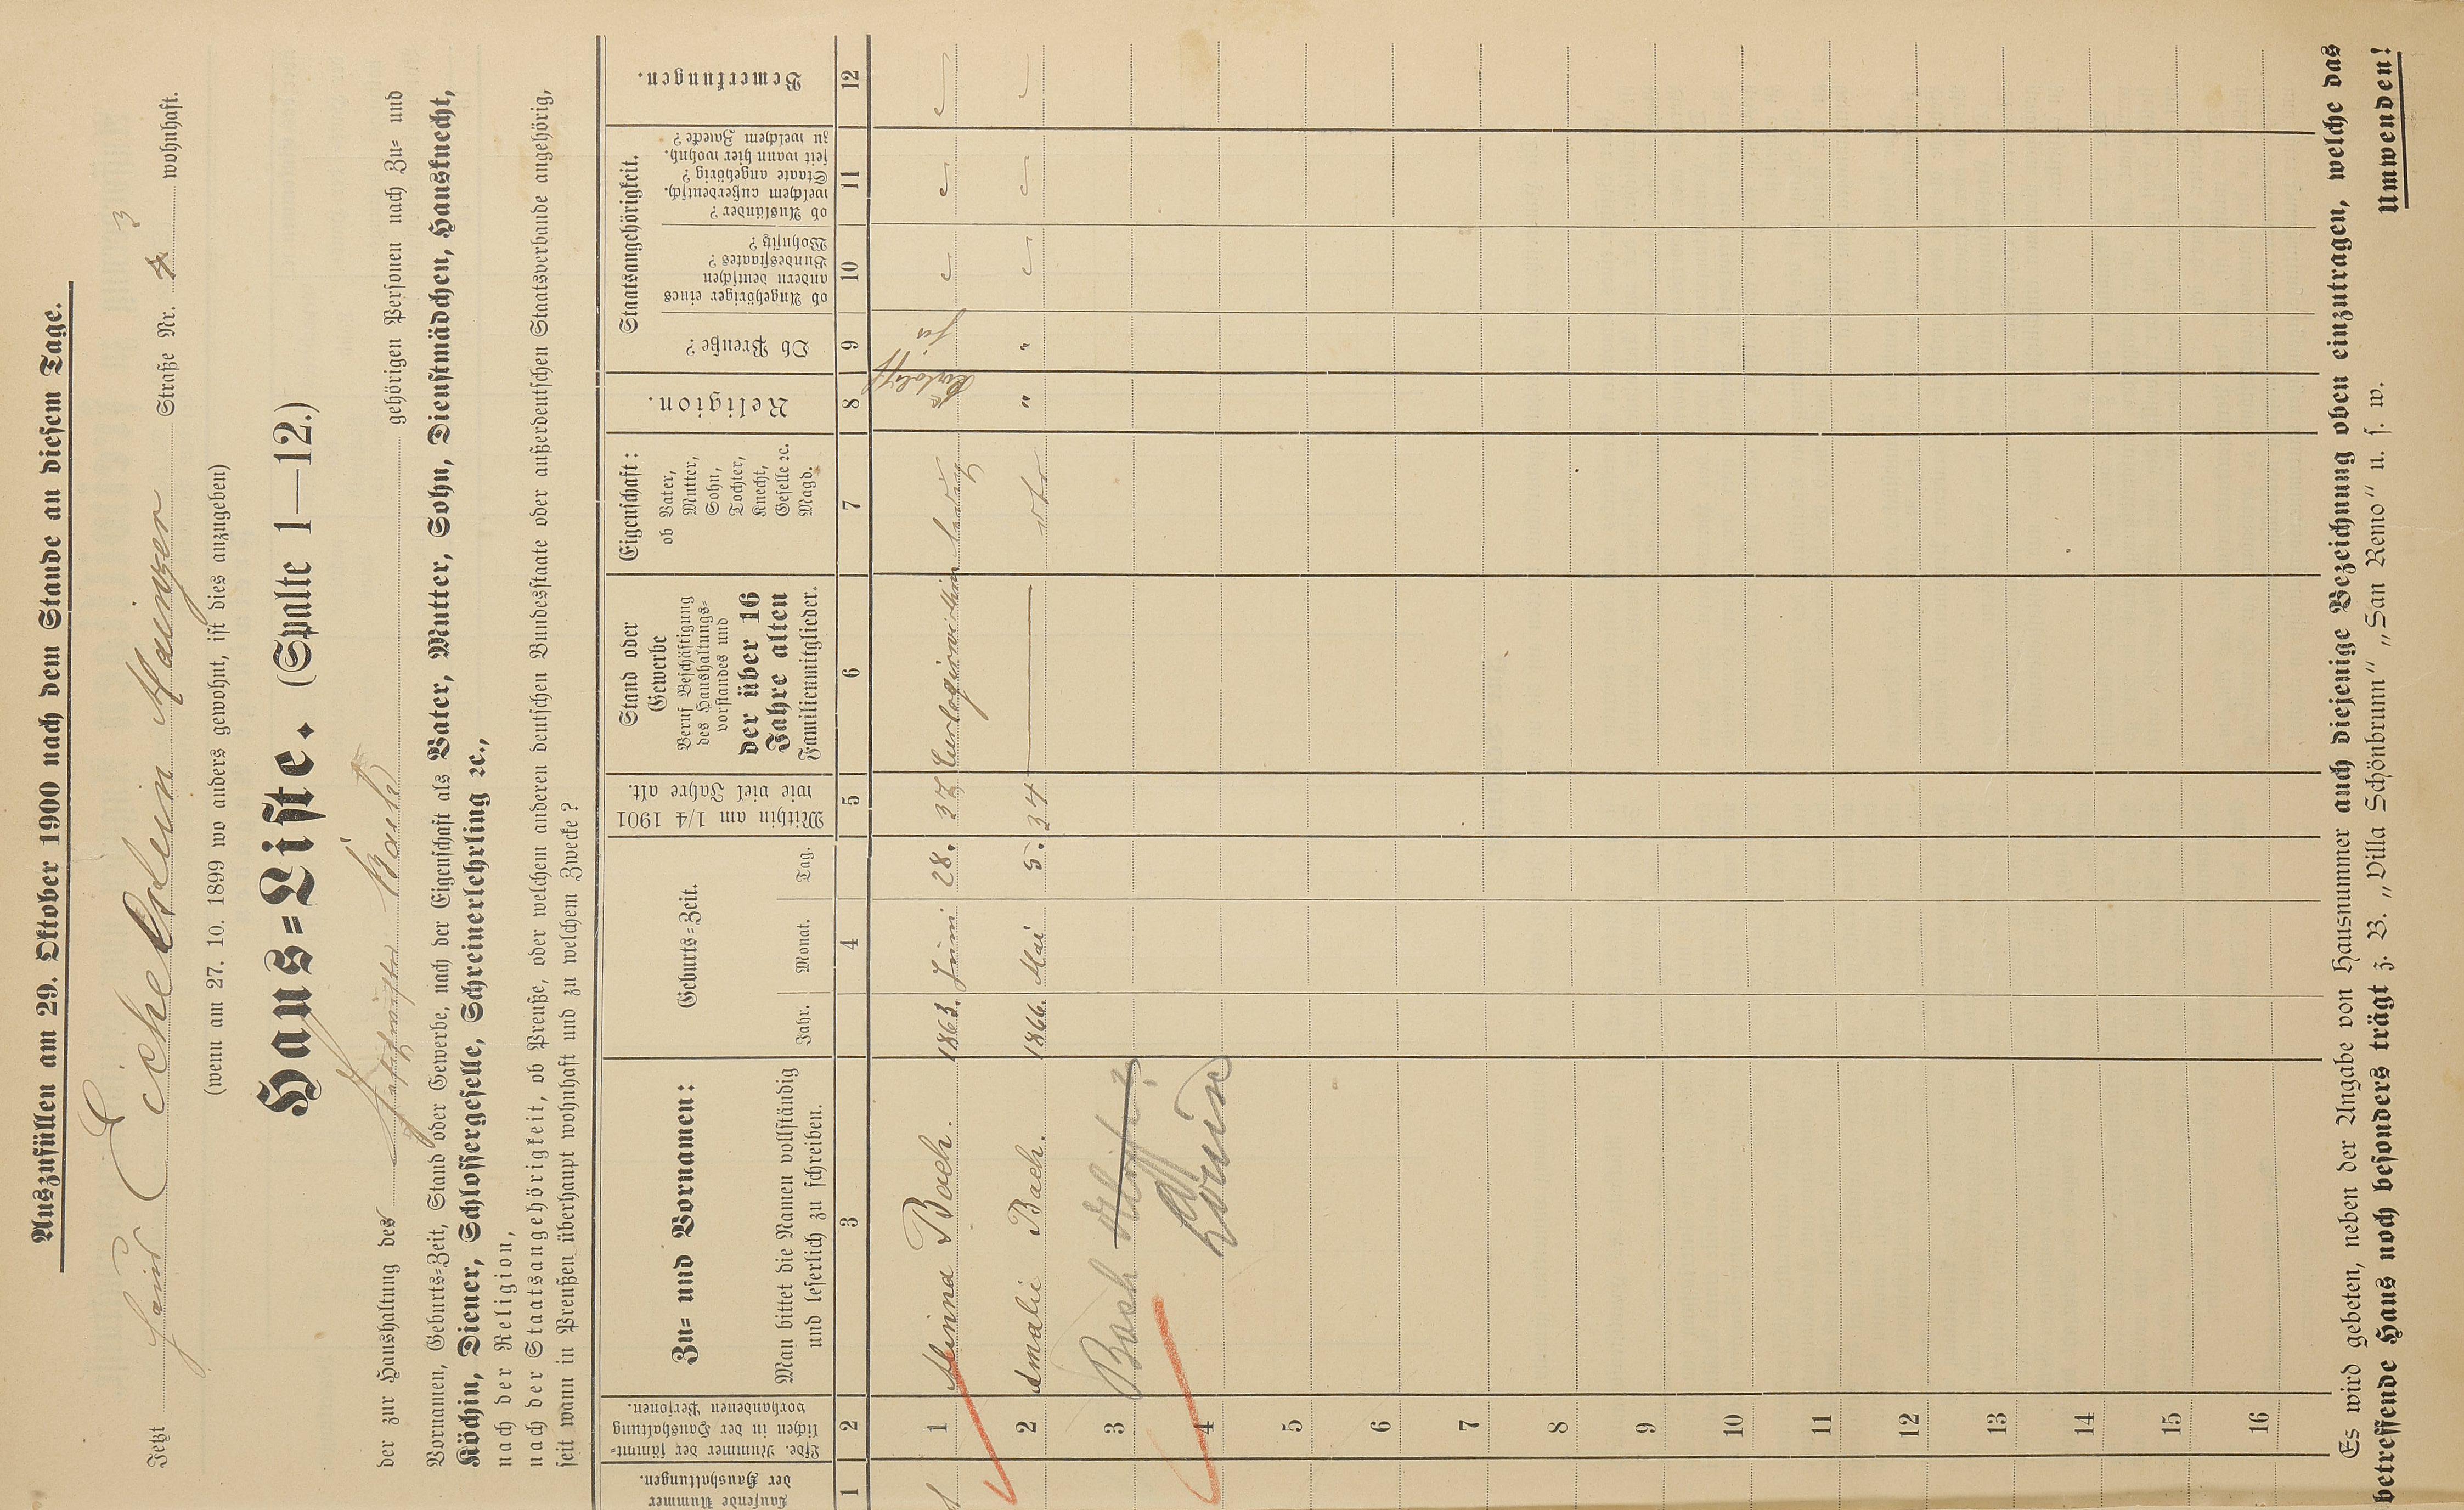 Auszufüllen am 29. Oktober 1900 nach dem Stande an diesem Tage.
Jetzt Haus Eichelstein Mainzer Straße Nr. 4 3 wohnhaft.
(wenn am 27. 10. 1899 wo anders gewohnt, ist dies anzugeben)
Haus=Liste. (Spalte 1—12.)
der zur Haushaltung des Bach gehörigen Personen nach Zu= und
Vornamen, Geburts=Zeit, Stand oder Gewerbe, nach der Eigenschaft als Vater, Mutter, Sohn, Dienstmädchen, Hausknecht,
Köchin, Diener, Schlossergeselle, Schreinerlehrling ꝛc.,
nach der Religion,
nach der Staatsangehörigkeit, ob Preuße, oder welchem anderen deutschen Bundesstaate oder außerdeutschen Staatsverbande angehörig,
seit wann in Preußen überhaupt wohnhaft und zu welchem Zwecke?
Laufende Nummer
der Haushaltungen.
Lfde. Nummer der sämmt=
lichen in der Haushaltung
vorhandenen Personen.
Zu= und Vornamen:
Man bittet die Namen vollständig
und leserlich zu schreiben.
Geburts=Zeit.
Jahr. Monat. Tag.
Mithin am 1/4 1901
wie viel Jahre alt.
Stand oder
Gewerbe
Beruf Beschäftigung
des Haushaltungs=
vorstandes und
der über 16
Jahre alten
Familienmitglieder.
Eigenschaft:
ob Vater,
Mutter,
Sohn,
Tochter,
Knecht,
Geselle ꝛc.
Magd.
Religion.
Staatsangehörigkeit.
Ob Preuße?
ob Angehöriger eines
andern deutschen
Bundesstaates?
Wohnsitz?
ob Ausländer?
welchem außerdeutsch.
Staate angehörig?
seit wann hier wohnh.
zu welchem Zwecke?
Bemerkungen.
1 2 3 4 5 6 7 8 9 10 11 12
1 1 Minna Bach. 1863. Juni 28. 37 Curlogirwirthin ledig ja
2 Amalie Bach. 1866. Mai 5. 34 — dto " "
3 Bach
4 Louis
5
6
7
8
9
10
11
12
13
14
15
16
Es wird gebeten, neben der Angabe von Hausnummer auch diejenige Bezeichnung oben einzutragen, welche das
betreffende Haus noch besonders trägt z. B. „Villa Schönbrunn" „San Remo" u. s. w.
Umwenden!